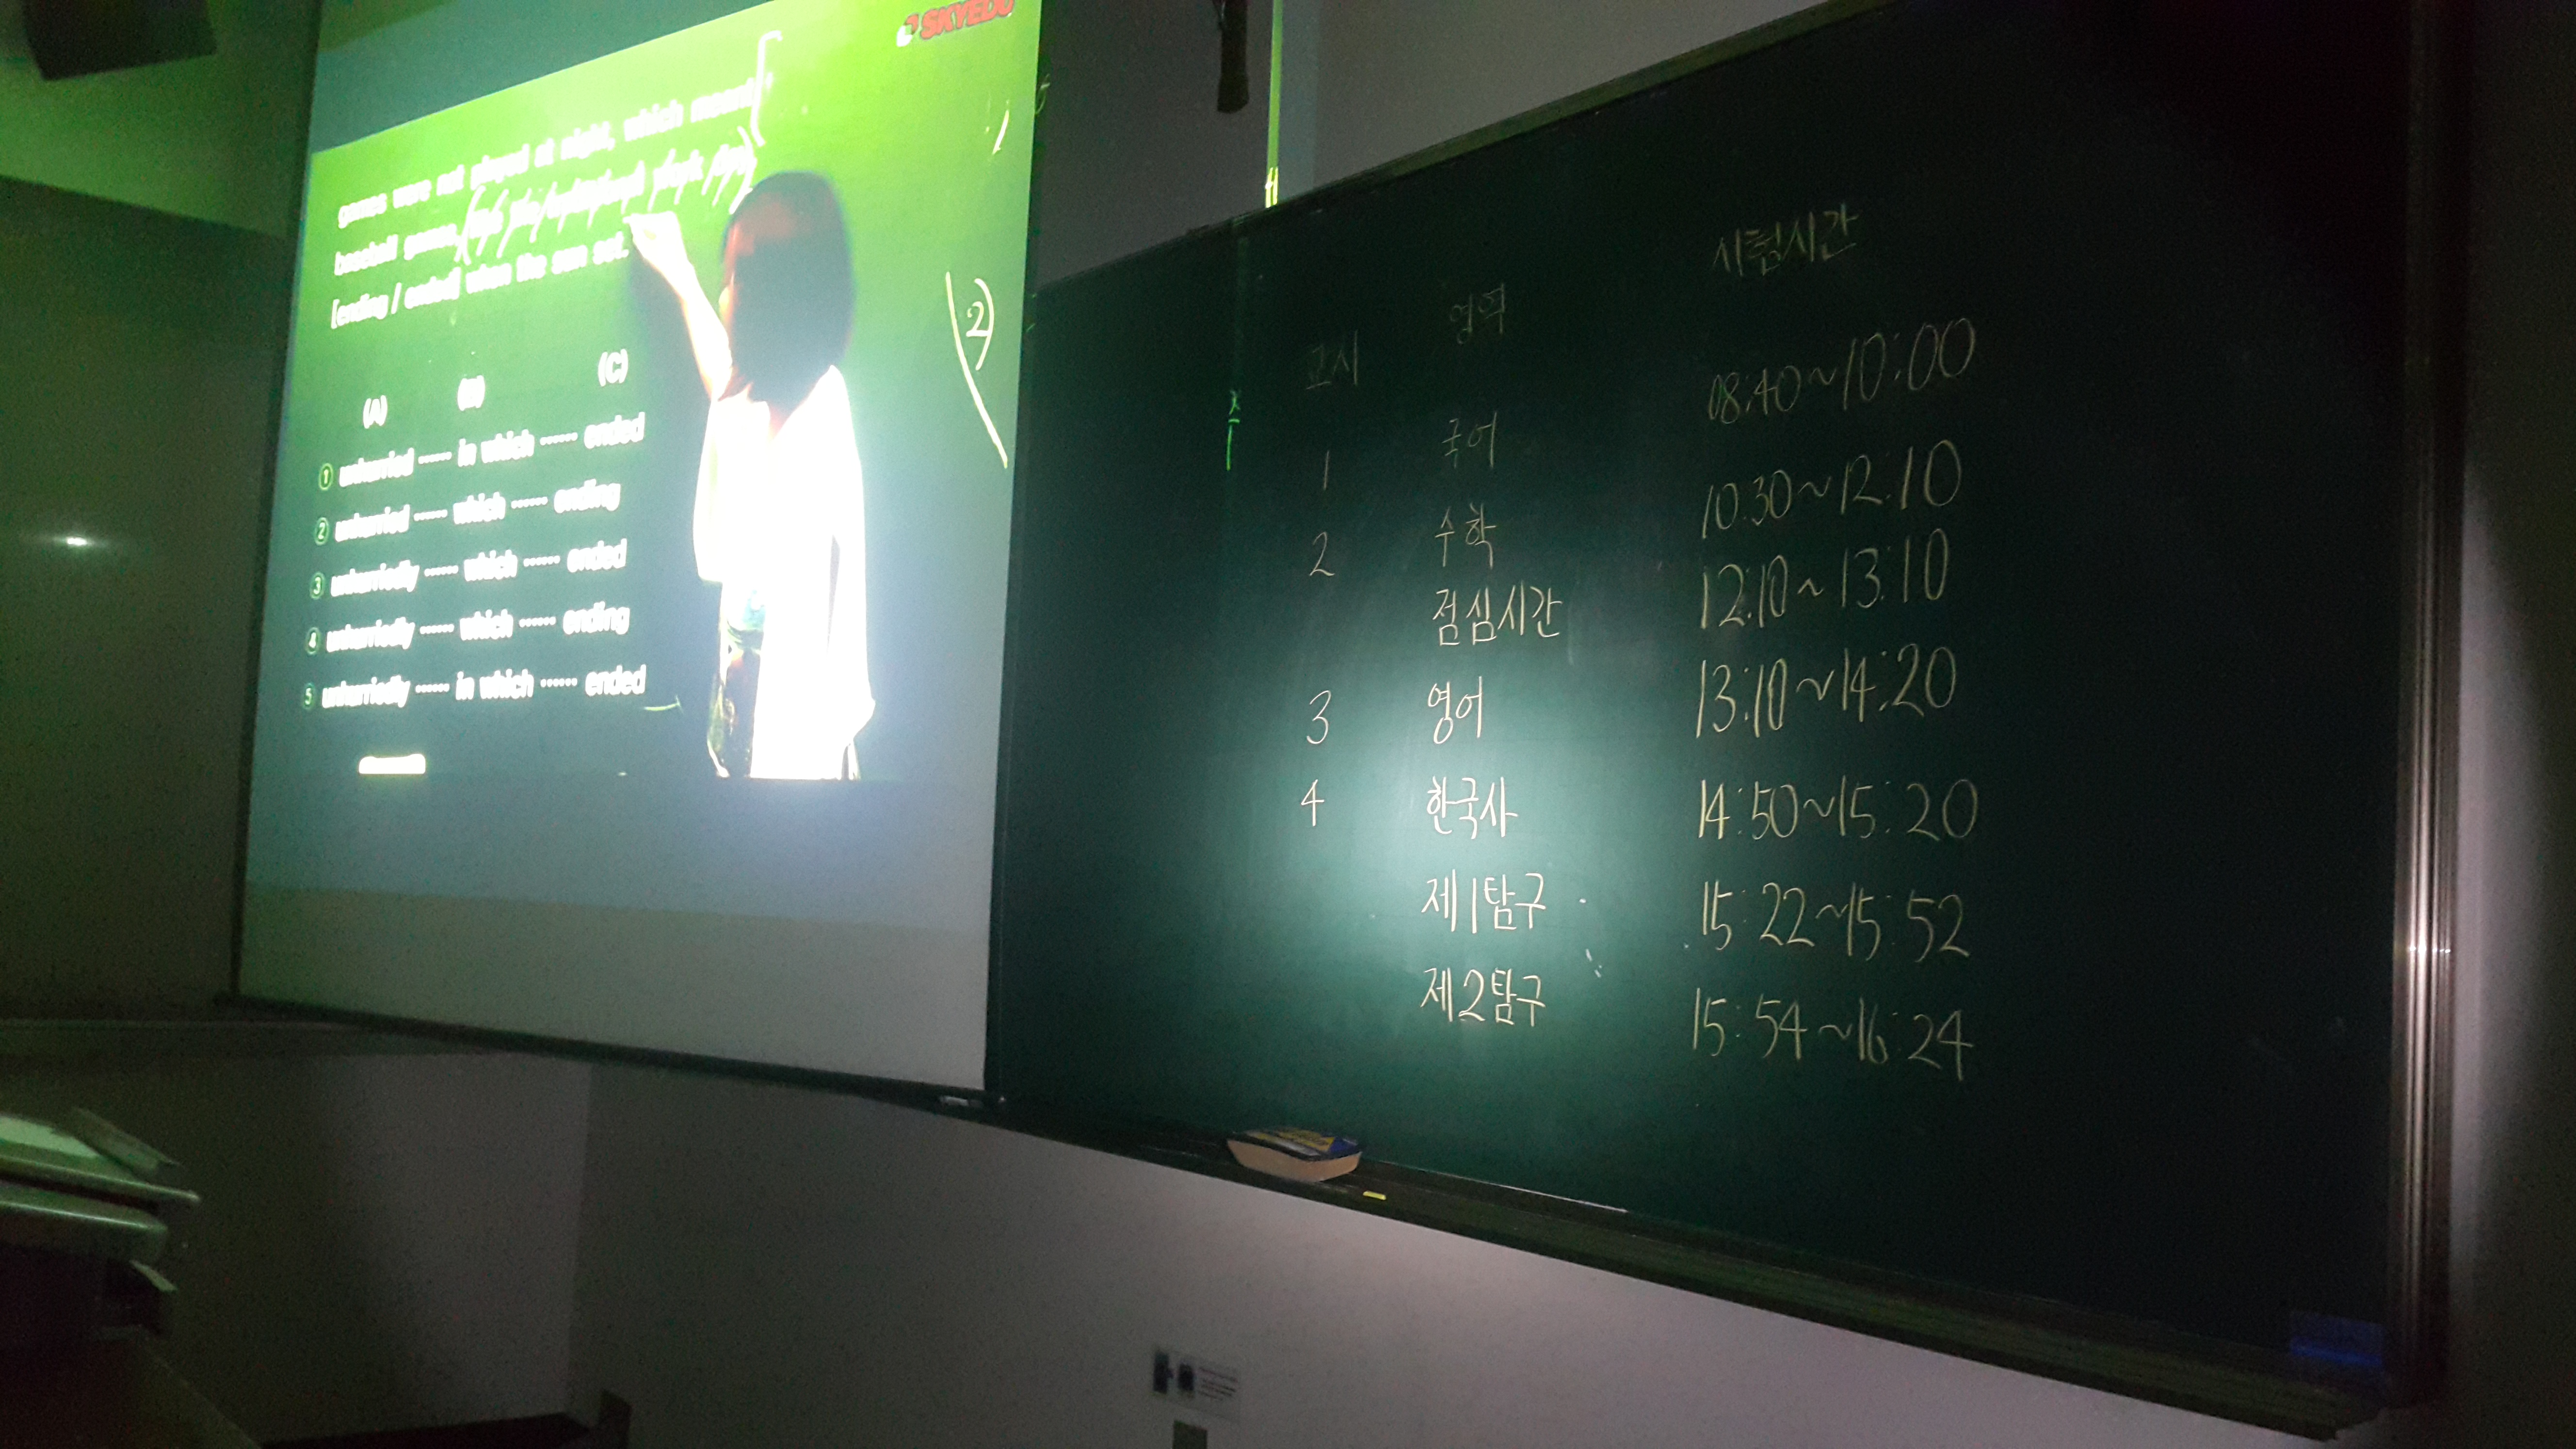 SKYEDU
games were not played at night, which meant
baseball games,
[ending / ended] when the sun set.
(A) (B) (C)
① unhurried ······ in which ······ ended
② unhurried ······ which ······ ending
③ unhurriedly ······ which ······ ended
④ unhurriedly ······ which ······ ending
⑤ unhurriedly ······ in which ······ ended
2)
교시 영역 시험시간
1 국어 08:40~10:00
2 수학 10:30~12:10
점심시간 12:10~13:10
3 영어 13:10~14:20
4 한국사 14:50~15:20
제1탐구 15:22~15:52
제2탐구 15:54~16:24